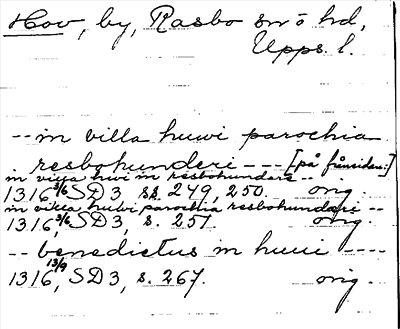 Hov, by, Rasbo sn o hd,
Upps. l.
-- in villa huwi parochia
resbohunderi --- [på frånsidan:]
in villa hwi in resbohundare --
1316 3/6 SD 3, ss. 249, 250. orig.
in villa huwi parochia resbohunderi --
1316, 3/6 SD 3, s. 251 orig.
-- benedictus in huui ----
1316, 13/9 SD 3, s. 267. orig.